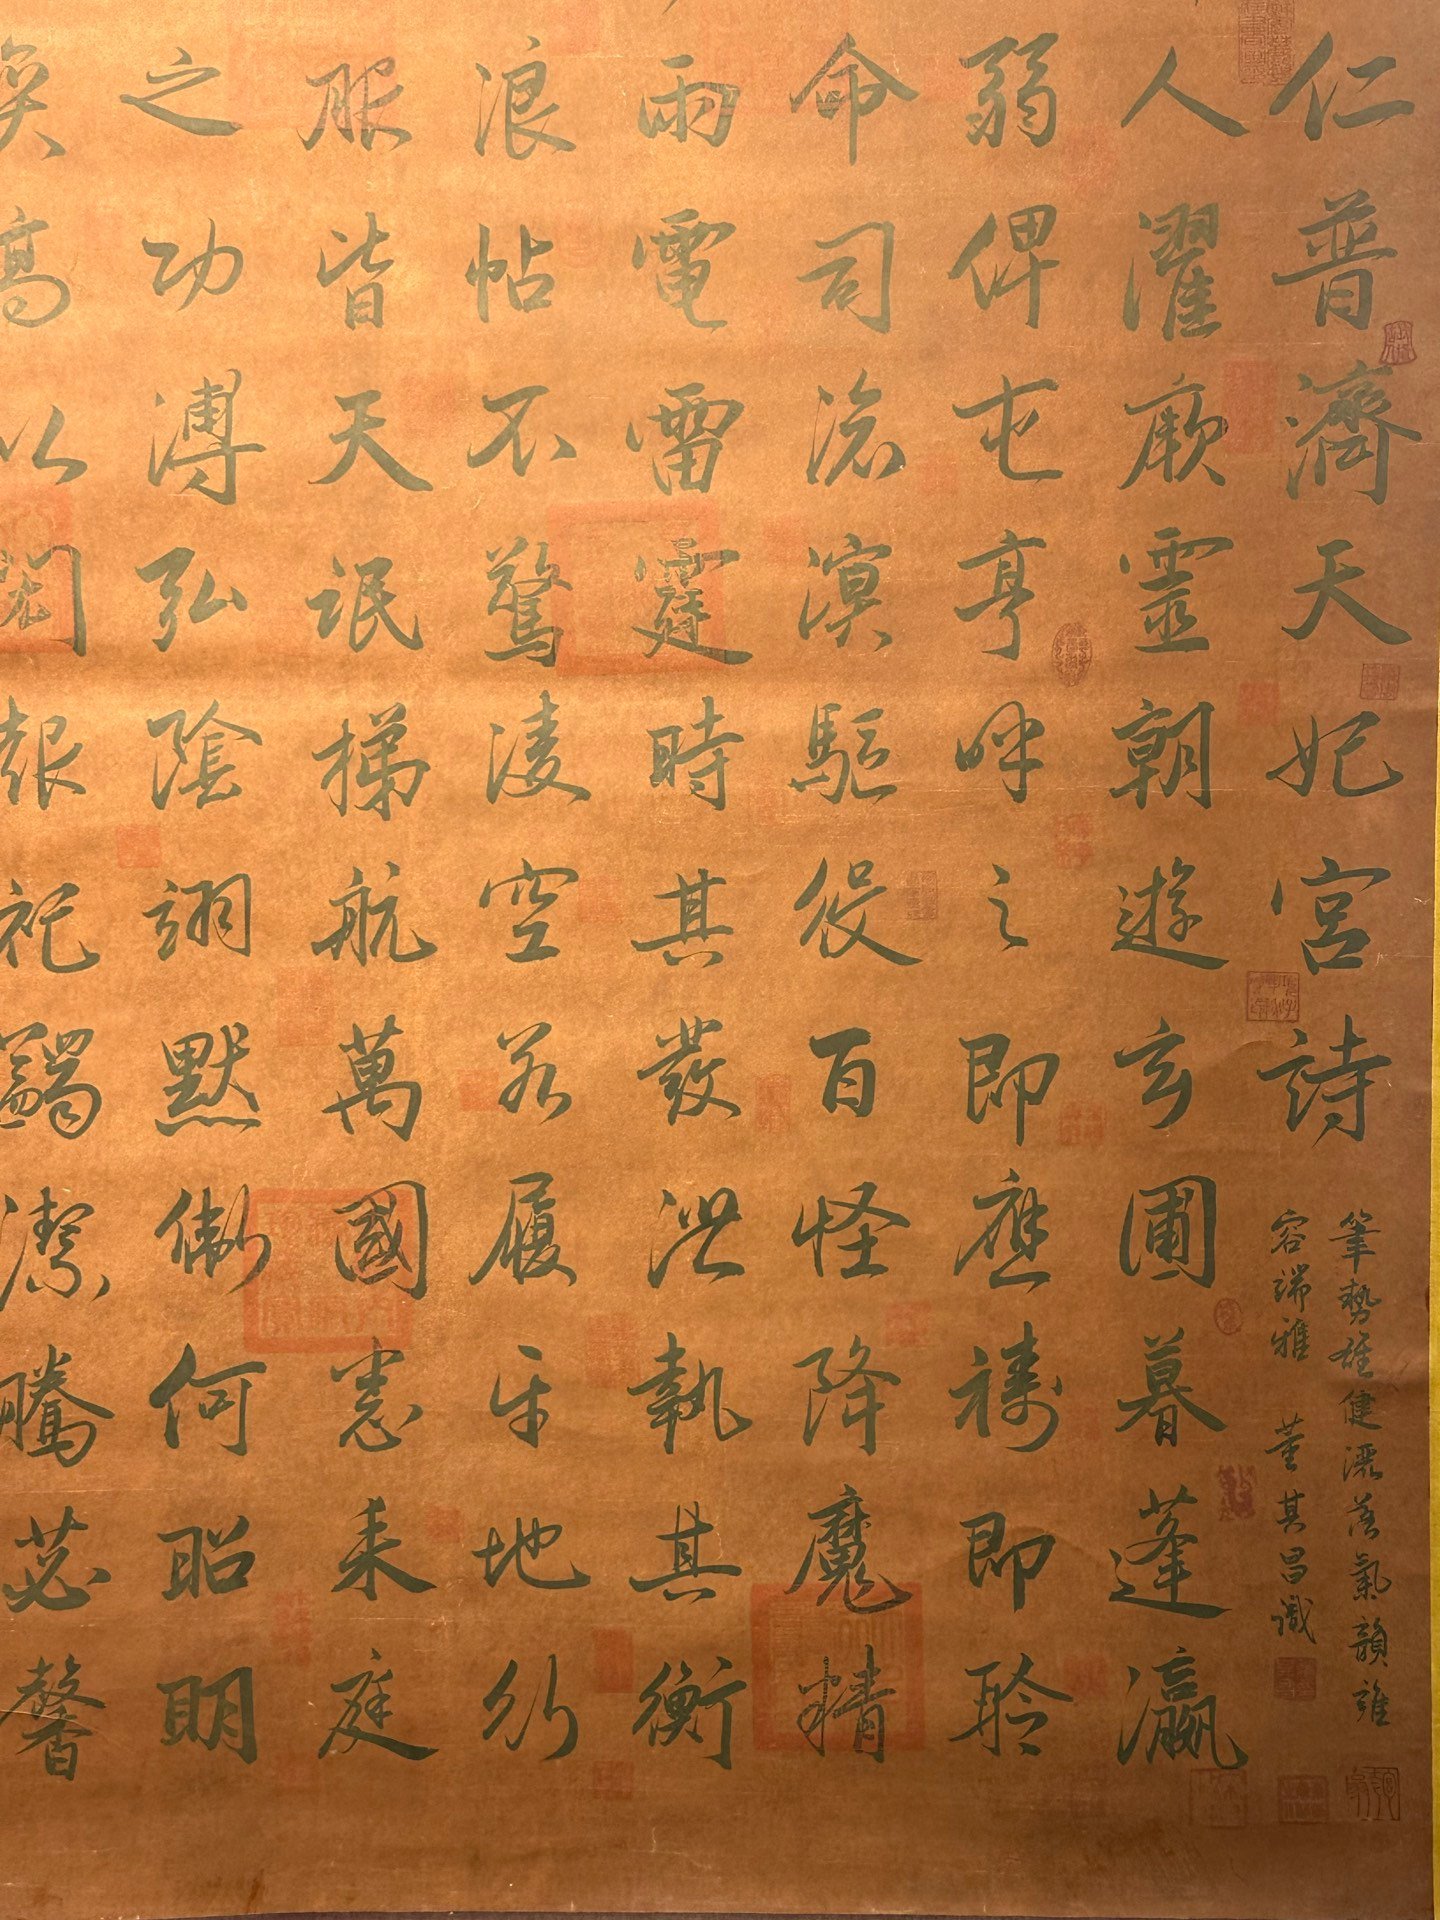 仁普濟天妃宮詩
筆勢雄健灑落氣韻雖
容端雅 董其昌識
人濯厥靈朝遊玄圃暮蓬瀛
弱俾屯亨呼之即應禱即聆
命司滄溟驅役百怪降魔精
雨電雷霆時其發泄執其衡
浪帖不驚凌空若履平地行
服皆天氓梯航萬國悉來庭
之功溥弘陰翊默衛何昭明
奐高以閎報祀蠲潔騰苾馨